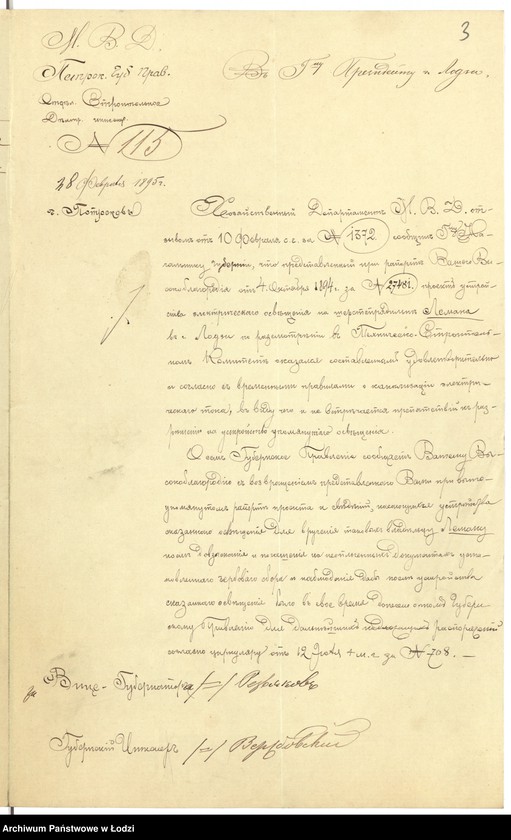 3
М. В. Д.
Петрок. Губ. Прав.
Отдѣл. Строительное
№ 115
28 Февраля 1895 г.
г. Петроковъ
Г-ну Президенту г. Лодзи.
Хозяйственный Департаментъ М. В. Д. от-
ъ 10 Февраля с.г. за № 1372 сообщилъ Г.
губерніи, что представленный при рапортѣ Вашего Вы-
сокоблагородія отъ 4 Октября 1894 г. за № 27481 проектъ устрой-
ства электрическаго освѣщенія на шерстопрядильнѣ Лемана
въ г. Лодзи по разсмотрѣніи въ Техническо-Строитель-
номъ Комитетѣ оказался составленнымъ удовлетворительно
и согласно съ временными правилами о канализаціи электри-
ческаго тока, въ виду чего и не встрѣчается препятствій къ раз-
рѣшенію на устройство упомянутаго освѣщенія.
О семъ Губернское Правленіе сообщаетъ Вашему Вы-
сокоблагородію съ возвращеніемъ представленнаго Вами при выше-
упомянутомъ рапортѣ проекта и свѣдѣній, касающихся устройства
сказаннаго освѣщенія для врученія таковыхъ владѣльцу Леману
и наблюденія дабы послѣ устройства
сказаннаго освѣщенія было въ свое время донесено о томъ Губерн-
скому Правленію для дальнѣйшихъ распоряженій
согласно циркуляру отъ 12 Іюля с.г. за № 708. —
за Вице-Губернатора /—/
Губернскій Инженеръ /—/ Вербовскій
Archiwum Państwowe w Łodzi